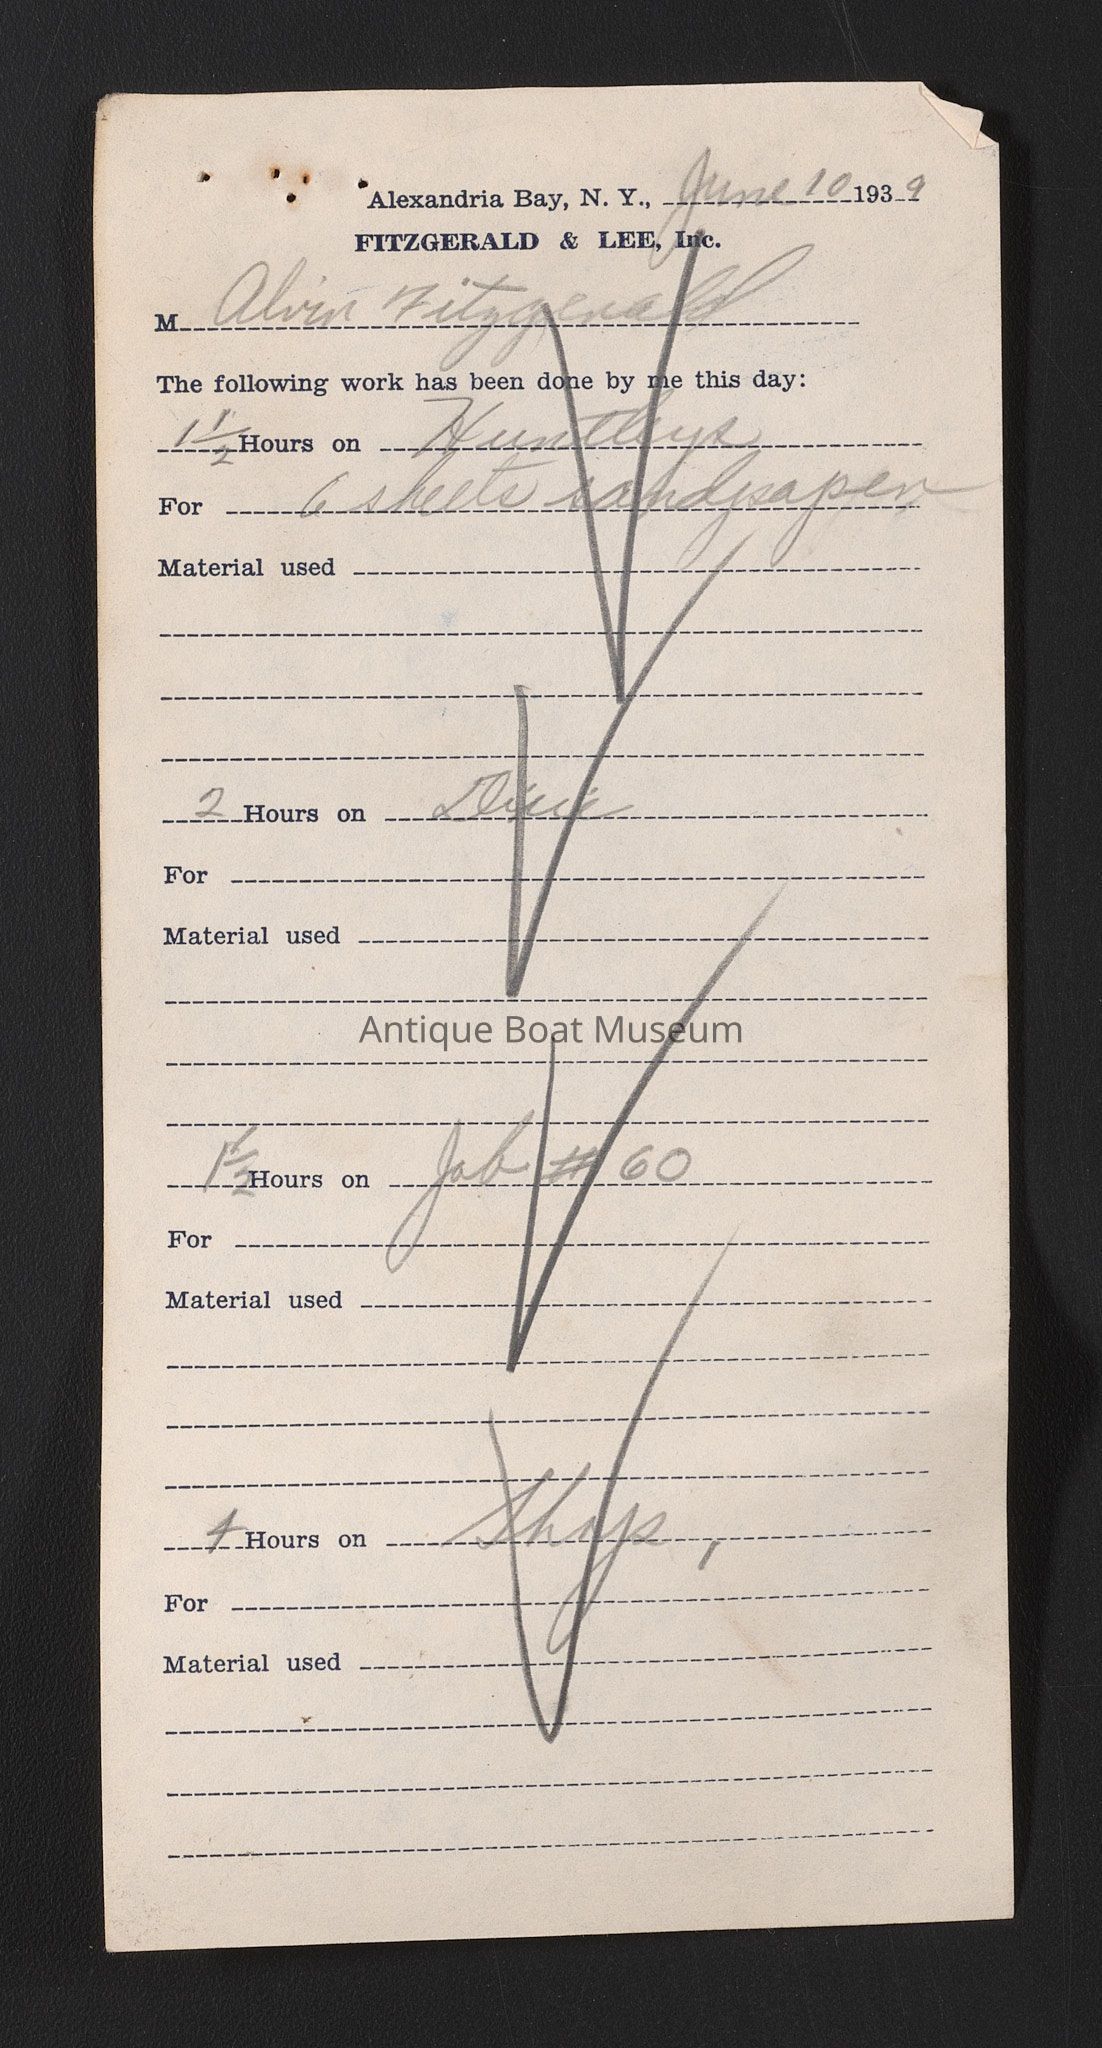 Alexandria Bay, N. Y., June 10 1939
FITZGERALD & LEE, Inc.
M Alvin Fitzgerald
The following work has been done by me this day:
1 1/2 Hours on Huntleys
For 6 sheets sandpaper
Material used
2 Hours on Dixie
For
Material used
Antique Boat Museum
1 1/2 Hours on Job # 60
For
Material used
Hours on
For
Material used